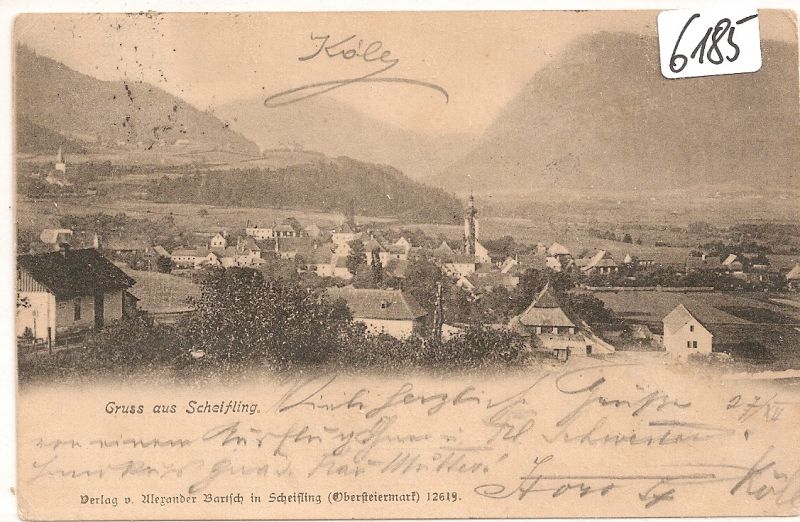 6185
Köly
Gruss aus Scheifling.
Viele herzliche Grüße 27/VII
von einem Ausflug Ihnen u. Frl. Schwester
Frau Mutter
Köly
Verlag v. Alexander Bartsch in Scheifling (Obersteiermark) 12619.